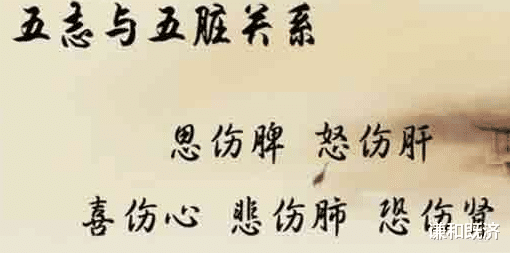 五志与五脏关系
思伤脾 怒伤肝
喜伤心 悲伤肺 恐伤肾
谦和既济